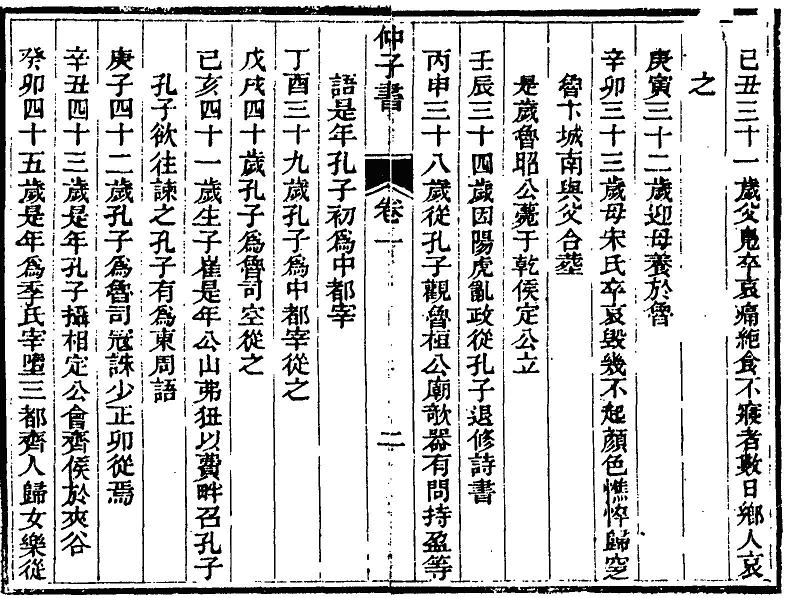 己丑三十一歲父鳧卒哀痛絕食不寢者數日鄉人哀
之
庚寅三十二歲迎母養於魯
辛卯三十三歲母宋氏卒哀毀幾不起顏色憔悴歸窆
魯卞城南與父合塟
是歲魯昭公薨于乾侯定公立
壬辰三十四歲因陽虎亂政從孔子退修詩書
丙申三十八歲從孔子觀魯桓公廟欹器有問持盈等
仲子書
卷一
二
語是年孔子初爲中都宰
丁酉三十九歲孔子爲中都宰從之
戊戌四十歲孔子爲魯司空從之
己亥四十一歲生子崔是年公山弗狃以費畔召孔子
孔子欲往諫之孔子有爲東周語
庚子四十二歲孔子爲魯司冦誅少正卯從焉
辛丑四十三歲是年孔子攝相定公會齊侯於夾谷
癸卯四十五歲是年爲季氏宰墮三都齊人歸女樂從